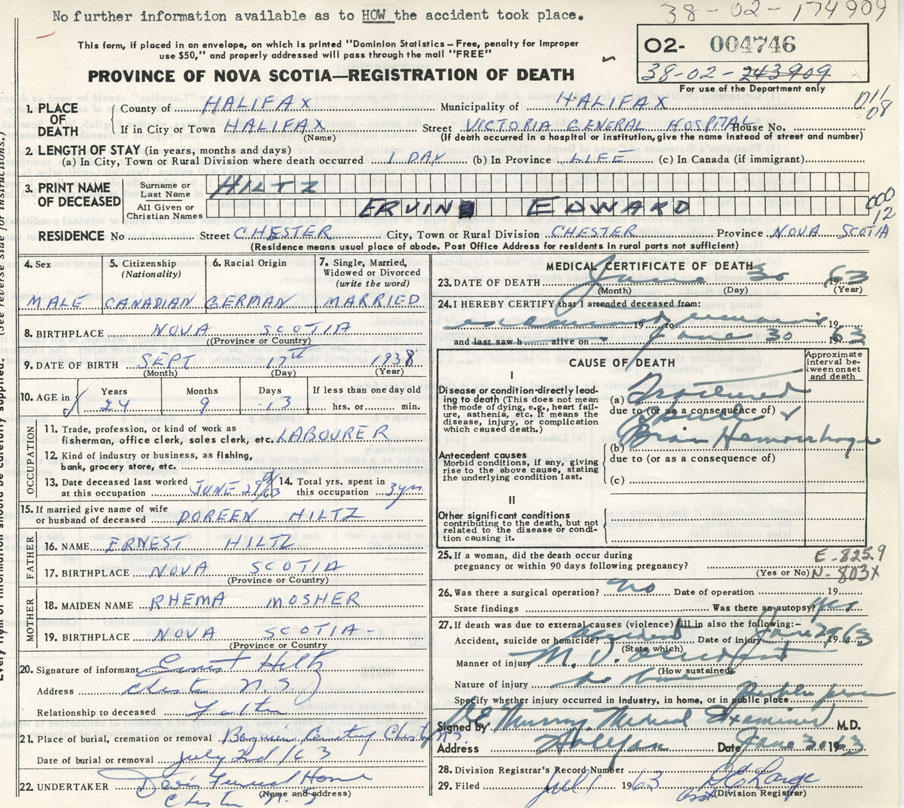 No further information available as to HOW the accident took place.
38-02-174909
This form, if placed in an envelope, on which is printed "Dominion Statistics - Free, penalty for improper
use $50," and properly addressed will pass through the mail "FREE"
02- 004746
38-02-243909
For use of the Department only
PROVINCE OF NOVA SCOTIA—REGISTRATION OF DEATH
1. PLACE OF DEATH
County of HALIFAX Municipality of HALIFAX
If in City or Town HALIFAX Street VICTORIA GENERAL HOSPITAL House No.
(Name) (If death occurred in a hospital or institution, give the name instead of street and number)
2. LENGTH OF STAY (in years, months and days)
(a) In City, Town or Rural Division where death occurred 1 DAY (b) In Province LIFE (c) In Canada (if immigrant)
3. PRINT NAME OF DECEASED
Surname or Last Name HILTZ
All Given or Christian Names ERVIN EDWARD
000
12
RESIDENCE No Street CHESTER City, Town or Rural Division CHESTER Province NOVA SCOTIA
(Residence means usual place of abode. Post Office Address for residents in rural parts not sufficient)
4. Sex
MALE
5. Citizenship (Nationality)
CANADIAN
6. Racial Origin
GERMAN
7. Single, Married, Widowed or Divorced (write the word)
MARRIED
8. BIRTHPLACE NOVA SCOTIA
(Province or Country)
9. DATE OF BIRTH SEPT 17th 1938
(Month) (Day) (Year)
10. AGE in Years Months Days If less than one day old
24 9 13 hrs. or min.
OCCUPATION
11. Trade, profession, or kind of work as
fisherman, office clerk, sales clerk, etc. LABOURER
12. Kind of industry or business, as fishing,
bank, grocery store, etc.
13. Date deceased last worked at this occupation JUNE 29/63
14. Total yrs. spent in this occupation 3 yrs
15. If married give name of wife
or husband of deceased DOREEN HILTZ
FATHER
16. NAME ERNEST HILTZ
17. BIRTHPLACE NOVA SCOTIA
(Province or Country)
MOTHER
18. MAIDEN NAME RHEMA MOSHER
19. BIRTHPLACE NOVA SCOTIA -
(Province or Country)
20. Signature of informant Ernest Hiltz
Address Chester N.S
Relationship to deceased Father
21. Place of burial, cremation or removal Cemetery Chester N.S.
Date of burial or removal July 2nd/63
22. UNDERTAKER Funeral Home
(Name and address)
Chester N.S
MEDICAL CERTIFICATE OF DEATH
23. DATE OF DEATH June 30 1963
(Month) (Day) (Year)
24. I HEREBY CERTIFY that I attended deceased from:
examined remains
19 to 19
and last saw h alive on June 30 1963
CAUSE OF DEATH
Approximate interval between onset and death
I
Disease or condition-directly leading to death (This does not mean the mode of dying, e.g., heart failure, asthenia, etc. It means the disease, injury, or complication which caused death.)
(a) Fractured
due to (or as a consequence of)
Skull &
(b) Brain Hemorrhage
Antecedent causes
Morbid conditions, if any, giving rise to the above cause, stating the underlying condition last.
due to (or as a consequence of)
(c)
II
Other significant conditions
contributing to the death, but not related to the disease or condition causing it.
25. If a woman, did the death occur during
pregnancy or within 90 days following pregnancy?
(Yes or No)
E-825.9
N-803X
26. Was there a surgical operation? no Date of operation 19
State findings Was there an autopsy? yes
27. If death was due to external causes (violence) fill in also the following:-
Accident, suicide or homicide? accident Date of injury June 29 1963
(State which)
Manner of injury M.V. accident
(How sustained)
Nature of injury
Specify whether injury occurred in industry, in home, or in public place.
Signed by Murray Medical Examiner M.D.
Address Halifax Date June 30 1963
28. Division Registrar's Record Number
29. Filed July 1 1963
(Division Registrar)